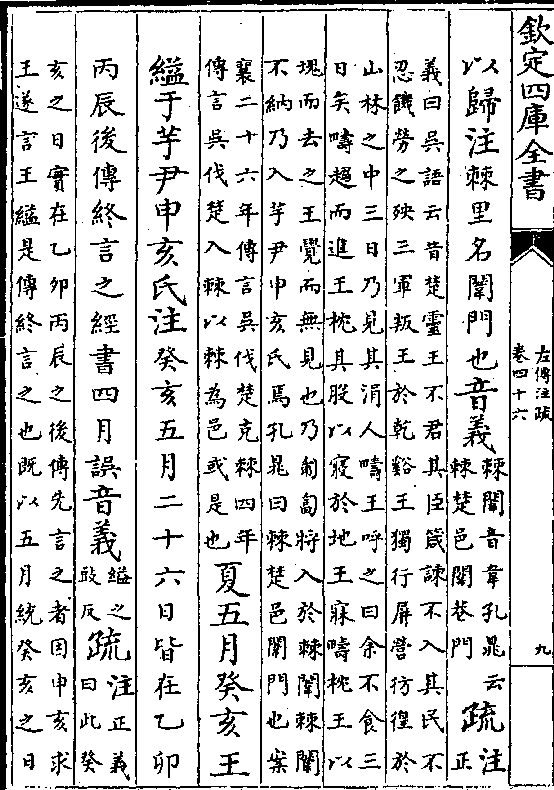 欽定四庫全書
左傳注疏
卷四十六
九
以歸注棘里名闈門也音義棘闈音韋孔晁云棘楚邑闈巷門疏注正
義曰吳語云昔楚靈王不君其臣箴諫不入其民不
忍饑勞之殃三軍叛王於乾谿王獨行屏營彷徨於
山林之中三日乃見其涓人疇王呼之曰余不食三
日矣疇趨而進王枕其股以寢於地王寐疇枕王以
塊而去之王覺而無見也乃匍匐將入於棘闈棘闈
不納乃入芋尹申亥氏焉孔晁曰棘楚邑闈門也案
襄二十六年傳言吳伐楚克棘四年
傳言吳伐楚入棘以棘為邑或是也夏五月癸亥王
縊于芋尹申亥氏注癸亥五月二十六日皆在乙卯
丙辰後傳終言之經書四月誤音義縊之豉反疏注正義曰此癸
亥之日實在乙卯丙辰之後傳先言之者因申亥求
王遂言王縊是傳終言之也既以五月統癸亥之日